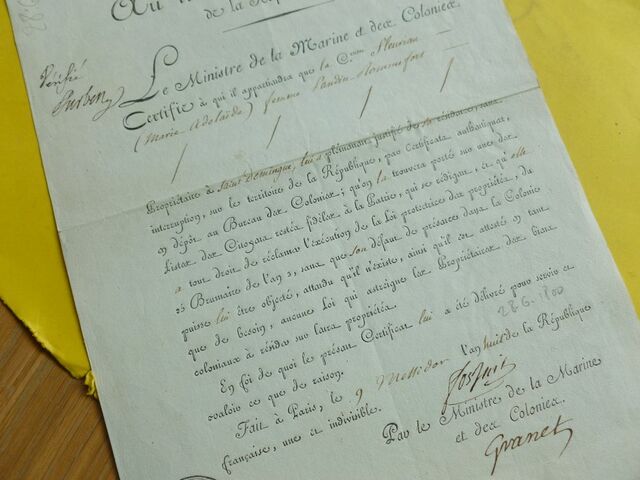 Au n
de la Rép
28 G
Vérifié
Le Ministre de la Marine et des Colonies
Certifie à qui il appartiendra que la C.enne Fleuriau
(Marie Adelaïde) femme
Propriétaire à Saint Domingue, lui a pleinement justifié de sa résidence, sans
interruption, sur le territoire de la République, par Certificats authentiques,
en dépôt au Bureau des Colonies; qu'on la trouvera portée sur une des
Listes des Citoyens restés fidèles à la Patrie, qui se rédigent, et qu'elle
a tout droit de réclamer l'exécution de la Loi protectrice des propriétés, du
25 Brumaire de l'an 2, sans que son défaut de présence dans la Colonie
puisse lui être objecté, attendu qu'il n'existe, ainsi qu'il est attesté en tant
que de besoin, aucune Loi qui astreigne les Propriétaires des biens
coloniaux à résider sur leurs propriétés.
En foi de quoi le présent Certificat lui a été délivré pour servir et
valoir ce que de raison.
28.6.1800
Fait à Paris, le 9 Messidor l'an huit de la République
française, une et indivisible.
Forfait
Par le Ministre de la Marine
et des Colonies.
Granet